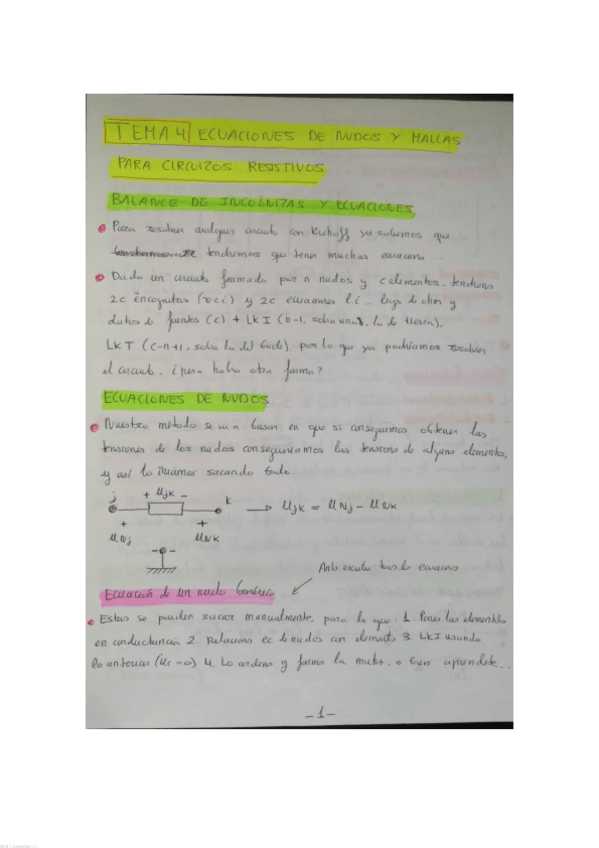 TEMA 4 | ECUACIONES DE NUDOS Y MALLAS
PARA CIRCUITOS RESISTIVOS
BALANCE DE INCÓGNITAS Y ECUACIONES
Para resolver cualquier circuito con Kirchoff ya sabemos que
tendremos que tener muchas ecuaciones...
Dado un circuito formado por n nudos y c elementos, tendremos
2c incógnitas (v e i) y 2c ecuaciones l.i. leyes de ohm y
datos de fuentes (c) + LKI (n-1, la de tierra),
LKT (c-n+1, la del bucle) por lo que ya podríamos resolver
el circuito, ¿pero habrá otra forma?
ECUACIONES DE NUDOS
Nuestro método se va a basar en que si conseguimos obtener las
tensiones de los nudos conseguiríamos las tensiones de alguno elementos,
y así lo sacando todo
j + Ujk - k → Ujk = UNj - UNk
+ +
UNj UNk
- -
las ecuaciones
Ecuación de un nudo Genérico
Estas se pueden sacar manualmente, para lo que: 1. Pones los elementos
en conductancia 2. Relaciono cc de nudos con elemento 3. LKI usando
lo antonces 4. Lo ordeno y formo la matriz, o bien aprendete...
-1-